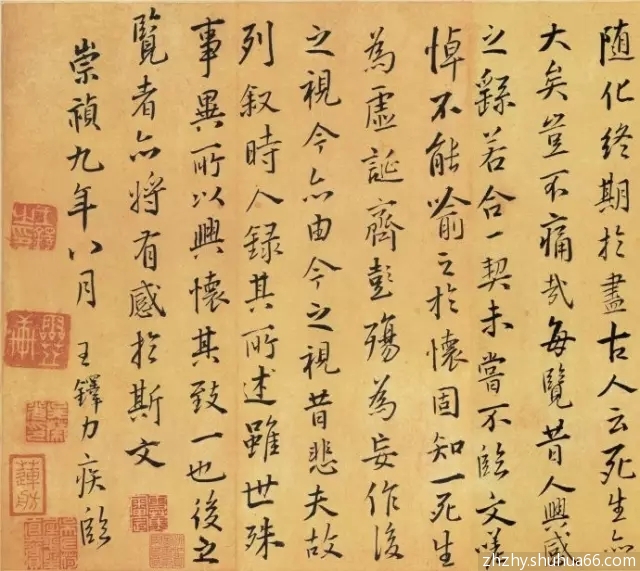 随化終期於盡古人云死生亦
大矣豈不痛哉每覽昔人興感
之繇若合一契未嘗不臨文嗟
悼不能喻之於懷固知一死生
為虛誕齊彭殤為妄作後
之視今亦由今之視昔悲夫故
列叙時人錄其所述雖世殊
事異所以興懷其致一也後之
覽者亦將有感於斯文
崇禎九年八月 王鐸力疾臨
zhzhy.shuhua66.com